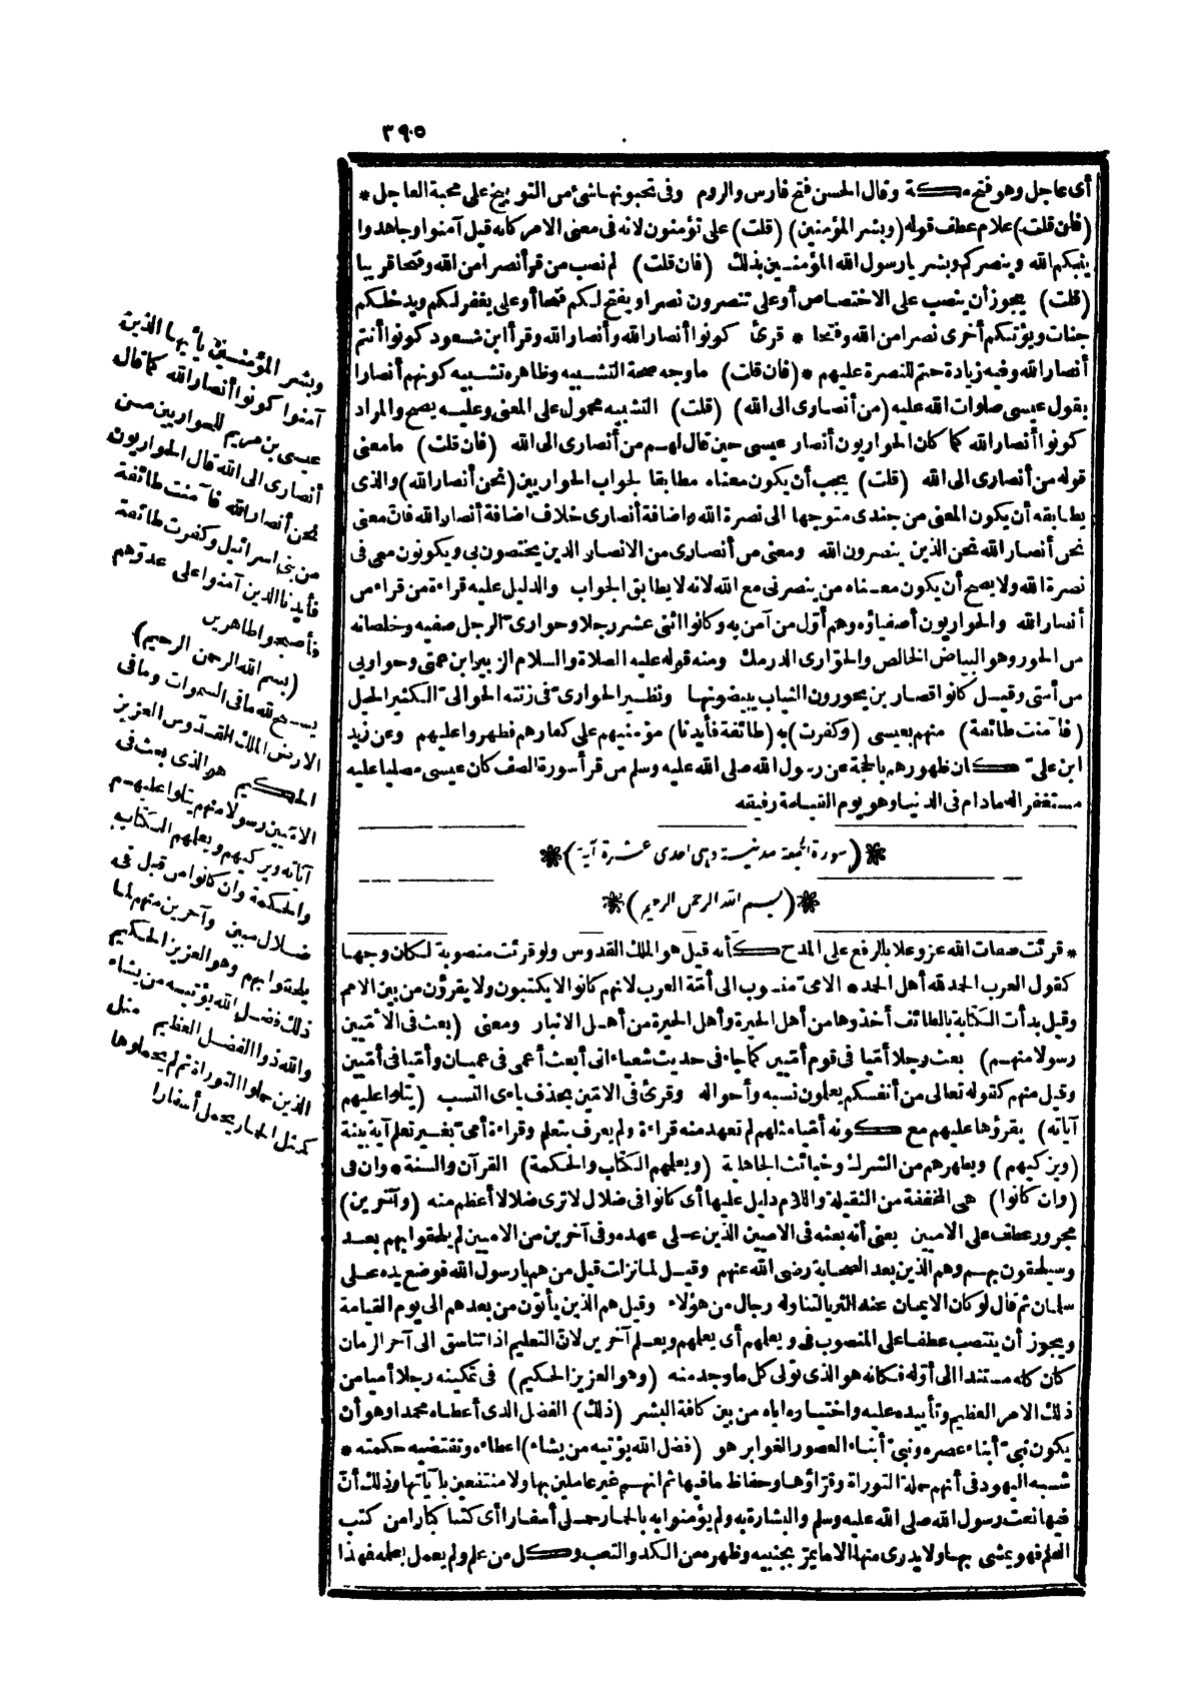 ٣٩٥
أى عاجل وهو فتح مكة وقال الحسن فتح فارس والروم وفى تحبونها شئ من التوبيخ على محبة العاجل *
(فان قلت) علام عطف قوله (وبشر المؤمنين) (قلت) على تؤمنون لانه فى معنى الامر كانه قيل آمنوا وجاهدوا
يثبكم الله وينصركم وبشر يا رسول الله المؤمنين بذلك (فان قلت) لم نصب من قرأ نصرا من الله وفتحا قريبا
(قلت) يجوز أن ينصب على الاختصاص أو على تنصرون نصرا ويفتح لكم فتحا أو على يغفر لكم ويدخلكم
جنات ويؤتكم أخرى نصرا من الله وفتحا * قرئ كونوا أنصار الله وأنصارا لله وقرأ ابن مسعود كونوا أنتم
أنصار الله وفيه زيادة حتم للنصرة عليهم * (فان قلت) ما وجه صحة التشبيه وظاهره تشبيه كونهم أنصارا
بقول عيسى صلوات الله عليه (من أنصارى الى الله) (قلت) التشبيه محمول على المعنى وعليه يصح والمراد
كونوا أنصار الله كما كان الحواريون أنصار عيسى حين قال لهم من أنصارى الى الله (فان قلت) ما معنى
قوله من أنصارى الى الله (قلت) يجب أن يكون معناه مطابقا لجواب الحواريين (نحن أنصار الله) والذى
يطابقه أن يكون المعنى من جندى متوجها الى نصرة الله واضافة أنصارى خلاف اضافة أنصار الله فان معنى
نحن أنصار الله نحن الذين ينصرون الله ومعنى من أنصارى من الانصار الذين يختصون بى ويكونون معى فى
نصرة الله ولا يصح أن يكون معناه من ينصرنى مع الله لانه لا يطابق الجواب والدليل عليه قراءة من قرأ من
أنصار الله والحواريون أصفياؤه وهم أول من آمن به وكانوا اثنى عشر رجلا وحوارىّ الرجل صفيه وخلصانه
من الحور وهو البياض الخالص والحوّارى الدرمك ومنه قوله عليه الصلاة والسلام الزبير ابن عمتى وحواريى
من أمتى وقيل كانوا قصارين يحورون الثياب يبيضونها ونظير الحوارىّ فى زنته الحوالىّ الكثير الحيل
(فآمنت طائفة) منهم بعيسى (وكفرت) به (طائفة فأيدنا) مؤمنيهم على كفارهم فظهروا عليهم وعن زيد
ابن علىّ كان ظهورهم بالحجة عن رسول الله صلى الله عليه وسلم من قرأ سورة الصف كان عيسى مصليا عليه
مستغفرا له ما دام فى الدنيا وهو يوم القيامة رفيقه
(سورة الجمعة مدنية وهى احدى عشرة آية)
(بسم الله الرحمن الرحيم)
* قرئت صفات الله عز وعلا بالرفع على المدح كأنه قيل هو الملك القدوس ولو قرئت منصوبة لكان وجها
كقول العرب الحمد لله أهل الحمد * الامىّ منسوب الى أمّة العرب لانهم كانوا لا يكتبون ولا يقرؤن من بين الامم
وقيل بدأت الكتابة بالطائف أخذوها من أهل الحيرة وأهل الحيرة من أهل الانبار ومعنى (بعث فى الأمّيين
رسولا منهم) بعث رجلا أمّيا فى قوم أمّيين كما جاء فى حديث شعياء انى أبعث أعمى فى عميان وأمّيا فى أمّيين
وقيل منهم كقوله تعالى من أنفسكم يعلمون نسبه وأحواله وقرئ فى الامّين بحذف ياءى النسب (يتلوا عليهم
آياته) يقرؤها عليهم مع كونه أمّيا مثلهم لم تعهد منه قراءة ولم يعرف بتعلم وقراءة أمىّ بغير تعلم آية بينة
(ويزكيهم) ويطهرهم من الشرك وخبائث الجاهلية (ويعلمهم الكتاب والحكمة) القرآن والسنة * وان فى
(وان كانوا) هى المخففة من الثقيلة واللام دليل عليها أى كانوا فى ضلال لا ترى ضلالا أعظم منه (وآخرين)
مجرور عطف على الاميين يعنى أنه بعثه فى الاميين الذين على عهده وفى آخرين من الاميين لم يلحقوا بهم بعد
وسيلحقون بهم وهم الذين بعد الصحابة رضى الله عنهم وقيل لما نزلت قيل من هم يا رسول الله فوضع يده على
سلمان ثم قال لو كان الايمان عند الثريا لتناوله رجال من هؤلاء وقيل هم الذين يأتون من بعدهم الى يوم القيامة
ويجوز أن ينتصب عطفا على المنصوب فى ويعلمهم أى يعلمهم ويعلم آخرين لانّ التعليم اذا تناسق الى آخر الزمان
كان كله مستندا الى أوّله فكانه هو الذى تولى كل ما وجد منه (وهو العزيز الحكيم) فى تمكينه رجلا أميا من
ذلك الامر العظيم وتأييده عليه واختياره اياه من بين كافة البشر (ذلك) الفضل الذى أعطاه محمدا وهو أن
يكون نبىّ أبناء عصره ونبىّ أبناء العصور الغوابر هو (فضل الله يؤتيه من يشاء) اعطاءه وتقتضيه حكمته *
شبه اليهود فى أنهم حملة التوراة وقرّاؤها وحفاظ ما فيها ثم انهم غير عاملين بها ولا منتفعين بآياتها وذلك أنّ
فيها نعت رسول الله صلى الله عليه وسلم والبشارة به ولم يؤمنوا به بالحمار حمل أسفارا أى كتبا كبارا من كتب
العلم فهو يمشى بها ولا يدرى منها الا ما يمرّ بجنبيه وظهره من الكد والتعب وكل من علم ولم يعمل بعلمه فهذا
وبشر المؤمنين يا أيها الذين
آمنوا كونوا أنصار الله كما قال
عيسى بن مريم للحواريين من
أنصارى الى الله قال الحواريون
نحن أنصار الله فآمنت طائفة
من بنى اسرائيل وكفرت طائفة
فأيدنا الذين آمنوا على عدوّهم
فأصبحوا ظاهرين
(بسم الله الرحمن الرحيم)
يسبح لله ما فى السموات وما فى
الارض الملك القدّوس العزيز
الحكيم هو الذى بعث فى
الامّيين رسولا منهم يتلوا عليهم
آياته ويزكيهم ويعلمهم الكتاب
والحكمة وان كانوا من قبل لفى
ضلال مبين وآخرين منهم لما
يلحقوا بهم وهو العزيز الحكيم
ذلك فضل الله يؤتيه من يشاء
والله ذوا الفضل العظيم مثل
الذين حملوا التوراة ثم لم يحملوها
كمثل الحمار يحمل أسفارا